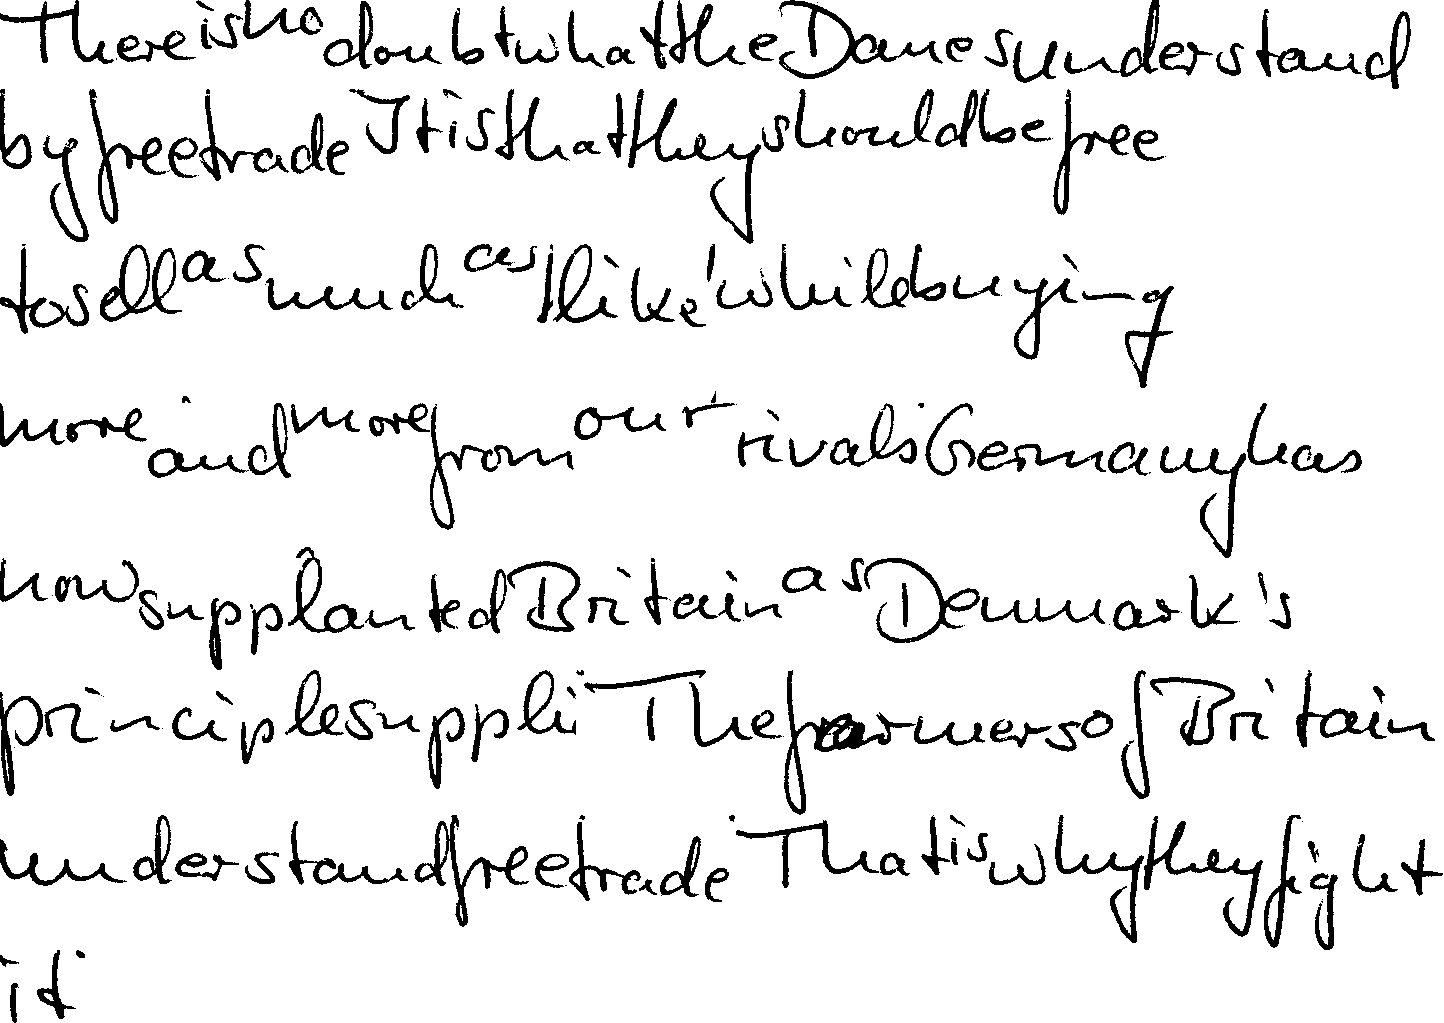 There is no doubt what the Danes understand
by free trade It is that they should be free
to sell as much as I like' while buying
more and more from our rivals Germany has
now supplanted Britain as Denmark's
principle suppli The farmers of Britain
understand free trade That is why they fight
it